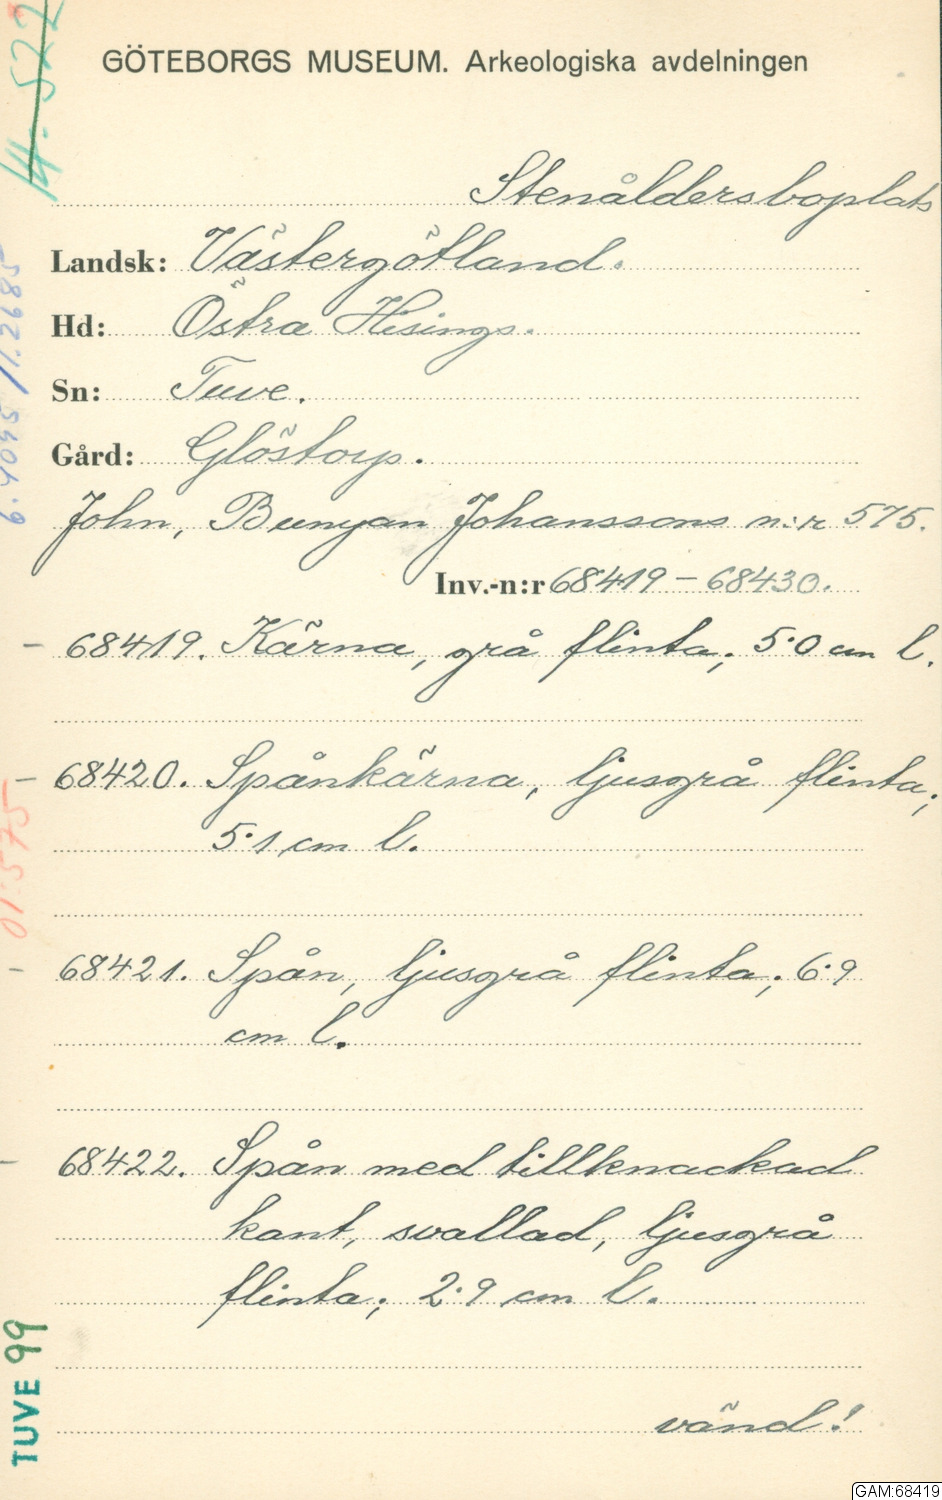 GÖTEBORGS MUSEUM. Arkeologiska avdelningen
Stenåldersboplats
Landsk: Västergötland.
Hd: Östra Hisings.
Sn: Tuve.
Gård: Glöstorp.
John, Bunyan Johanssons n:r 575.
Inv.-n:r 68419 – 68430.
– 68419. Kärna, grå flinta; 5·0 cm l.
– 68420. Spånkärna, ljusgrå flinta;
5·1 cm l.
– 68421. Spån, ljusgrå flinta; 6·9
cm l.
– 68422. Spån med tillknackad
kant, svallad, ljusgrå
flinta; 2·9 cm l.
vänd!
14-522
6.4095 / 1.2685
01:575
TUVE 99
GAM:68419